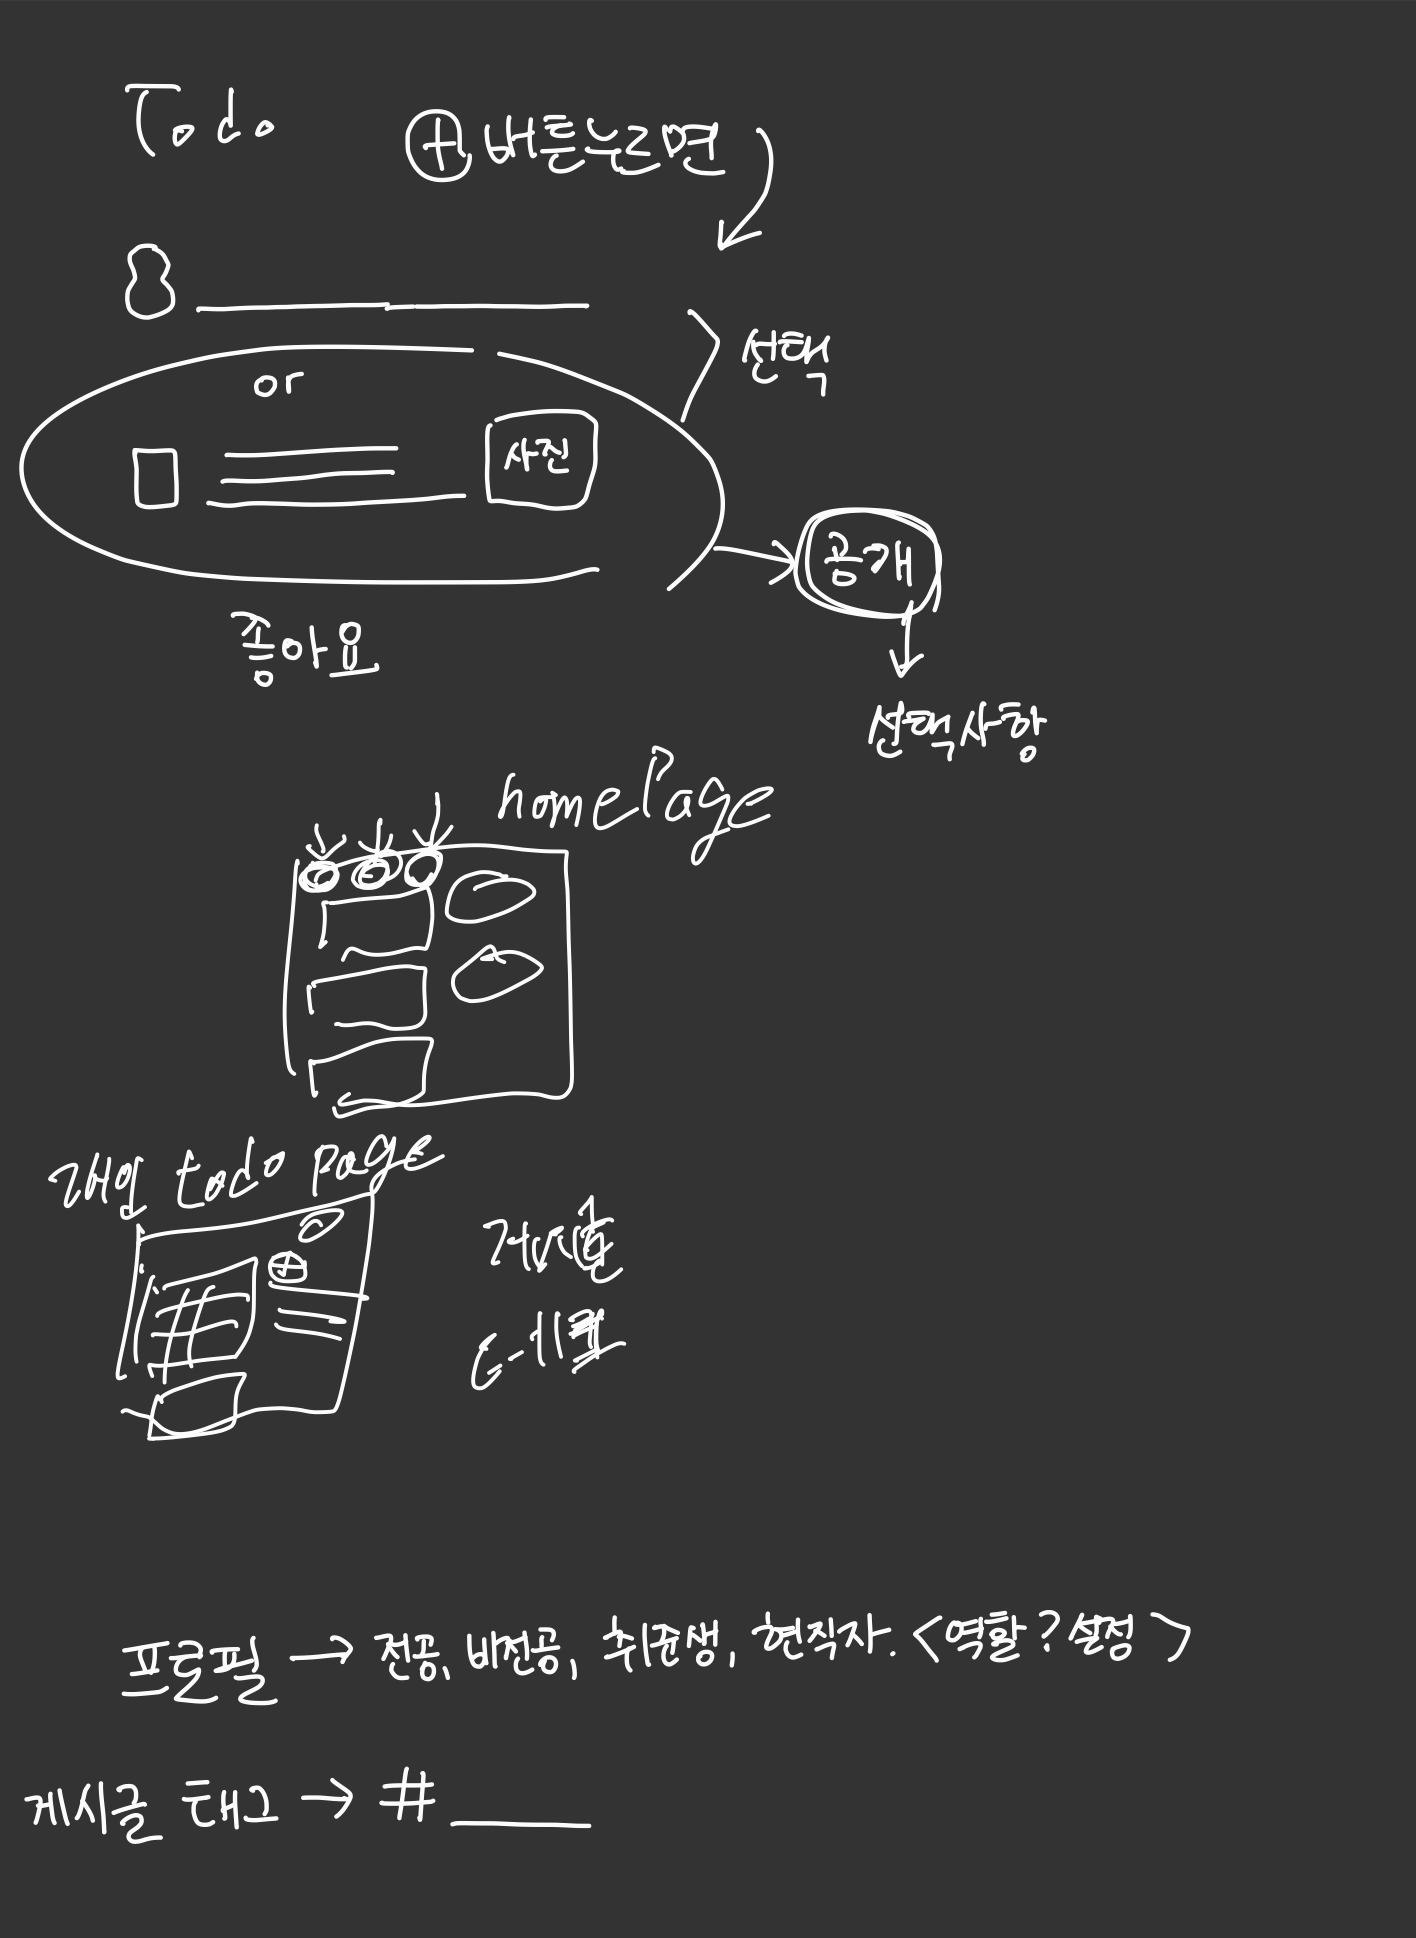 Todo
⊕ 버튼누르면
선택
or
사진
공개
좋아요
선택사항
homePage
개인 todo page
프로필 → 전공, 비전공, 취준생, 현직자. <역할? 설정>
게시글 태그 → #____